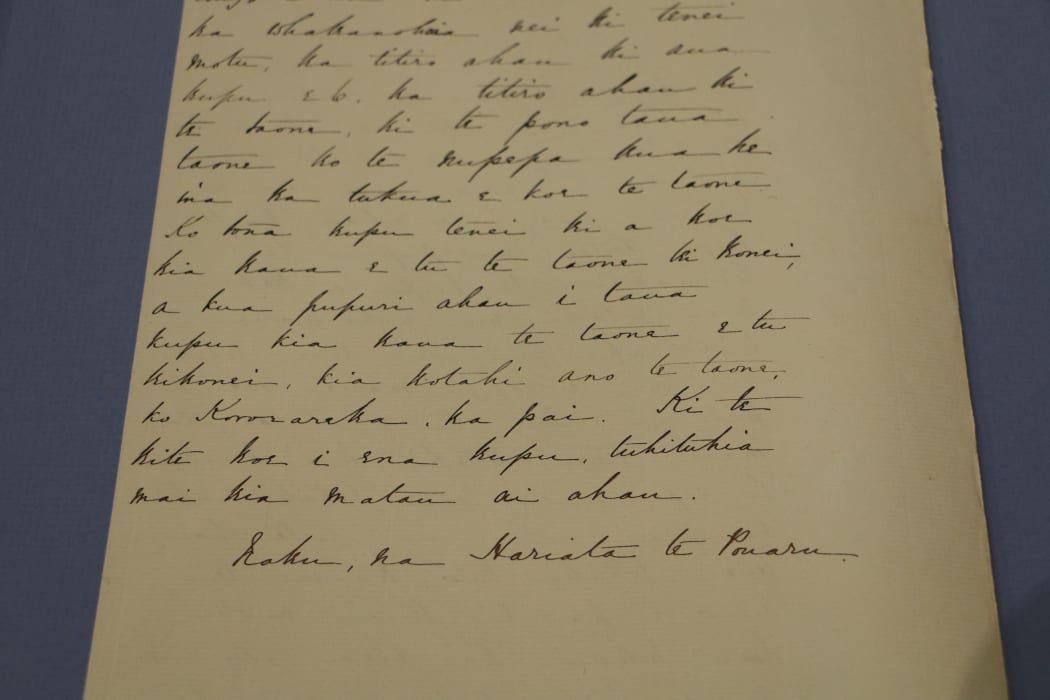 ka whakanohia nei ki tenei
motu, ka titiro ahau ki aua
kupu e 6. ka titiro ahau ki
te taone, ki te pono taua
taone ko te nupepa kua he
ina ka tukua e koe te taone
Ko tona kupu tenei ki a koe
kia kaua e tu te taone ki konei,
a kua pupuri ahau i taua
kupu kia kaua te taone e tu
kikonei, kia kotahi ano te taone,
ko Kororareka, ka pai. Ki te
kite koe i ena kupu, tuhituhia
mai kia matau ai ahau.
Naku, na Hariata te Pouaru.